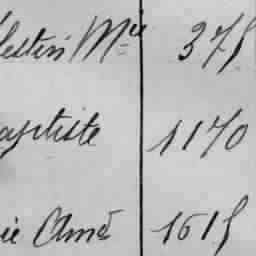 lestin Mie 375
aptiste 1170
ie Amé 1615